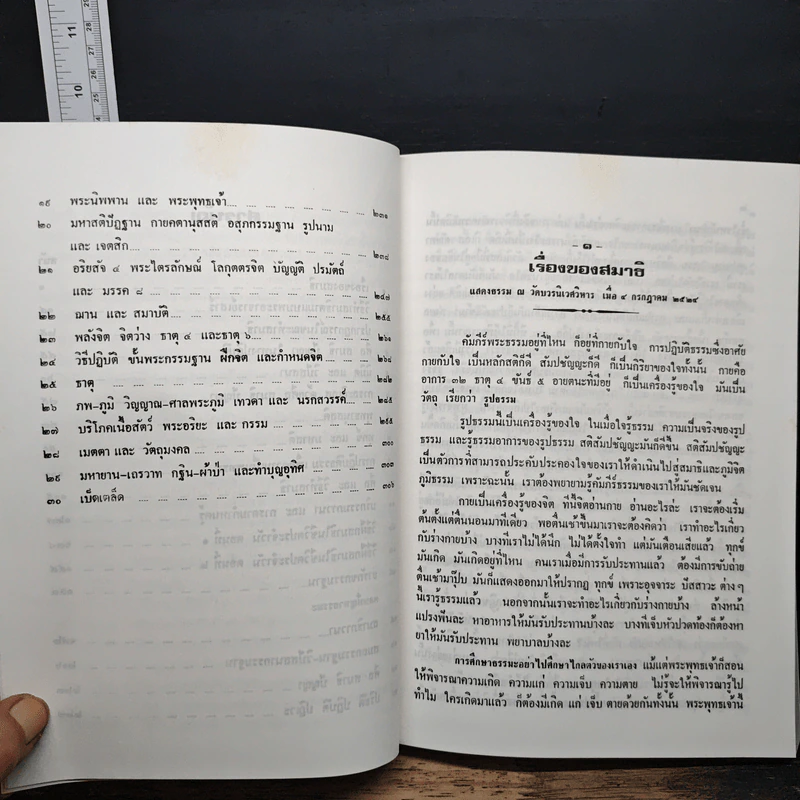 11
10
๑๙ พระนิพพาน และ พระพุทธเจ้า.... ๒๓๑
๒๐ มหาสติปัฏฐาน กายคตานุสสติ อสุภกรรมฐาน รูปนาม
และ เจตสิก.... ๒๓๘
๒๑ อริยสัจ ๔ พระไตรลักษณ์ โลกุตตรจิต บัญญัติ ปรมัตถ์
และ มรรค ๘ ๒๔๗
๒๒ ฌาน และ สมาบัติ ๒๕๕
๒๓ พลังจิต จิตว่าง ธาตุ ๔ และธาตุ ๖
๒๔ วิธีปฏิบัติ ขั้นพระกรรมฐาน ฝึกจิต และกำหนดจิต
๒๕ ธาตุ
๒๖ ภพ-ภูมิ วิญญาณ-ศาลพระภูมิ เทวดา และ นรกสวรรค์
๒๗ บริโภคเนื้อสัตว์ พระอริยะ และ กรรม ๒๙๕
๒๘ เมตตา และ วัตถุมงคล ๓๐๐
๒๙ มหายาน-เถรวาท กฐิน-ผ้าป่า และทำบุญอุทิศ ๓๐๓
๓๐ เบ็ดเตล็ด ๓๐๖
-๑-
เรื่องของสมาธิ
แสดงธรรม ณ วัดบวรนิเวศวิหาร เมื่อ ๔ กรกฎาคม ๒๕๒๔
คัมภีร์พระธรรมอยู่ที่ไหน ก็อยู่ที่กายกับใจ การปฏิบัติธรรมซึ่งอาศัย
กายกับใจ เป็นหลักสติก็ดี สัมปชัญญะก็ดี ก็เป็นกิริยาของใจทั้งนั้น กายคือ
อาการ ๓๒ ธาตุ ๔ ขันธ์ ๕ อายตนะที่มีอยู่ ก็เป็นเครื่องรู้ของใจ มันเป็น
วัตถุ เรียกว่า รูปธรรม
รูปธรรมนี้เป็นเครื่องรู้ของใจ ในเมื่อใจรู้ธรรม ความเป็นจริงของรูป
ธรรม และรู้ธรรมอาการของรูปธรรม สติสัมปชัญญะมันก็ดีขึ้น สติสัมปชัญญะ
เป็นตัวการที่สามารถประคับประคองใจของเราให้ดำเนินไปสู่สมาธิและภูมิจิต
ภูมิธรรม เพราะฉะนั้น เราต้องพยายามรู้คัมภีร์ธรรมของเราให้มันชัดเจน
กายเป็นเครื่องรู้ของจิต ทีนี้จิตอ่านกาย อ่านอะไรล่ะ เราจะต้องเริ่ม
ต้นตั้งแต่ตื่นนอนมาทีเดียว พอตื่นเช้าขึ้นมาเราจะต้องคิดว่า เราทำอะไรเกี่ยว
กับร่างกายบ้าง บางทีเราไม่ได้นึก ไม่ได้ตั้งใจทำ แต่มันเตือนเสียแล้ว ทุกข์
มันเกิด มันเกิดอยู่ที่ไหน คนเราเมื่อมีการรับประทานแล้ว ต้องมีการขับถ่าย
ตื่นเช้ามาปุ๊บ มันก็แสดงออกมาให้ปรากฏ ทุกข์ เพราะอุจจาระ ปัสสาวะ ต่าง ๆ
นี้เรารู้ธรรมแล้ว นอกจากนั้นเราจะทำอะไรเกี่ยวกับร่างกายบ้าง ล้างหน้า
แปรงฟันละ หาอาหารให้มันรับประทานบ้างละ บางทีเจ็บหัวปวดท้องก็ต้องหา
ยาให้มันรับประทาน พยาบาลบ้างละ
การศึกษาธรรมะอย่าไปศึกษาไกลตัวของเราเอง แม้แต่พระพุทธเจ้าก็สอน
ให้พิจารณาความเกิด ความแก่ ความเจ็บ ความตาย ไม่รู้จะให้พิจารณารู้ไป
ทำไม ใครเกิดมาแล้ว ก็ต้องมีเกิด แก่ เจ็บ ตายด้วยกันทั้งนั้น พระพุทธเจ้านี้